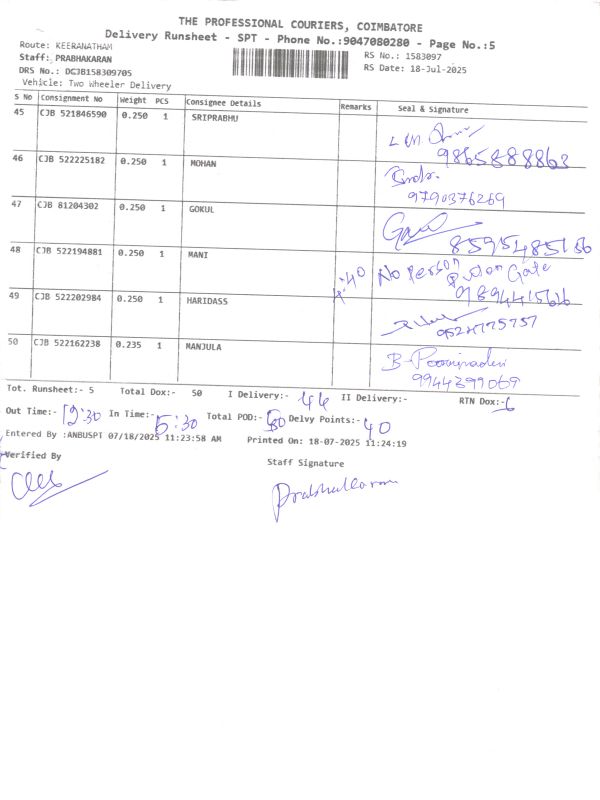 THE PROFESSIONAL COURIERS, COIMBATORE
Delivery Runsheet - SPT - Phone No.:9047080280 - Page No.:5
Route: KEERANATHAM
RS No.: 1583097
Staff: PRABHAKARAN
RS Date: 18-Jul-2025
DRS No.: DCJB158309705
Vehicle: Two Wheeler Delivery
S No Consignment No Weight PCS Consignee Details Remarks Seal & Signature
45 CJB 521846590 0.250 1 SRIPRABHU
9865888863
46 CJB 522225182 0.250 1 MOHAN
9790376269
47 CJB 81204302 0.250 1 GOKUL
8595485156
48 CJB 522194881 0.250 1 MANI 4:40 No Person
Put on Gate
9894415626
49 CJB 522202984 0.250 1 HARIDASS
9524775757
50 CJB 522162238 0.235 1 MANJULA
9944399069
Tot. Runsheet:- 5 Total Dox:- 50 I Delivery:- 44 II Delivery:- RTN Dox:- 6
Out Time:- 12:30 In Time:- 5:30 Total POD:- 50 Delvy Points:- 40
Entered By :ANBUSPT 07/18/2025 11:23:58 AM Printed On: 18-07-2025 11:24:19
Verified By
Staff Signature
Prabhakaran